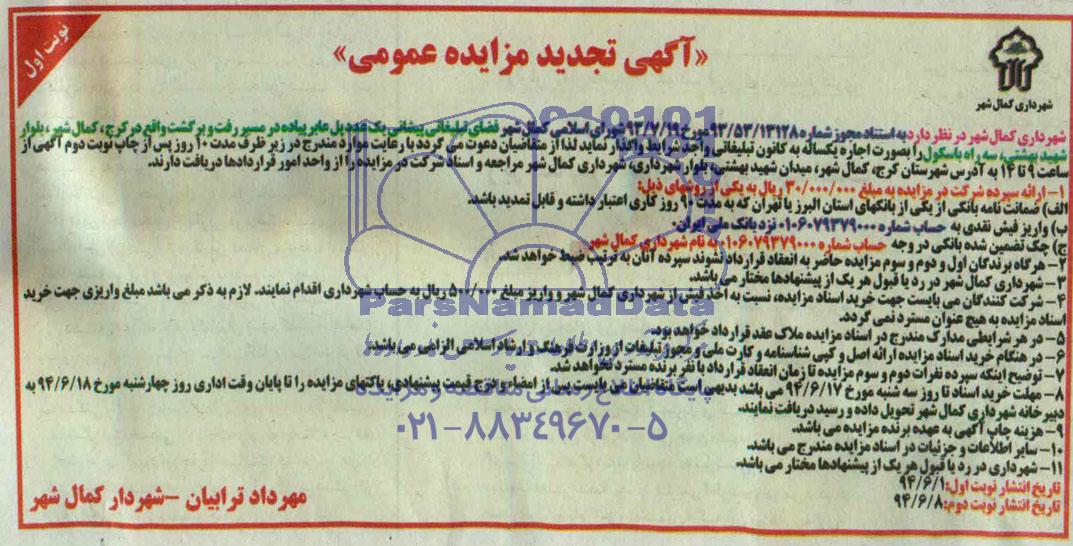 نوبت اول
«آگهی تجدید مزایده عمومی»
شهرداری کمال شهر
شهرداری کمال شهر در نظر دارد به استناد مجوز شماره ۹۳/۵۳/۱۳۱۲۸ مورخ ۹۳/۷/۱۹ شورای اسلامی کمال شهر فضای تبلیغاتی پیشانی یک عدد پل عابر پیاده در مسیر رفت و برگشت واقع در کرج، کمال شهر، بلوار
شهید بهشتی، سه راه باسکول را بصورت اجاره یکساله به کانون تبلیغاتی واجد شرایط واگذار نماید لذا از متقاضیان دعوت می گردد با رعایت موارد مندرج در زیر ظرف مدت ۱۰ روز پس از چاپ نوبت دوم آگهی از
ساعت ۹ تا ۱۴ به آدرس شهرستان کرج، کمال شهر، میدان شهید بهشتی، بلوار شهرداری، شهرداری کمال شهر مراجعه و اسناد شرکت در مزایده را از واحد امور قراردادها دریافت دارند.
۱- ارائه سپرده شرکت در مزایده به مبلغ ۳۰/۰۰۰/۰۰۰ ریال به یکی از روشهای ذیل:
الف) ضمانت نامه بانکی از یکی از بانکهای استان البرز یا تهران که به مدت ۹۰ روز کاری اعتبار داشته و قابل تمدید باشد.
ب) واریز فیش نقدی به حساب شماره ۰۱۰۶۰۷۹۳۷۹۰۰۰ نزد بانک ملی ایران.
ج) چک تضمین شده بانکی در وجه حساب شماره ۰۱۰۶۰۷۹۳۷۹۰۰۰ به نام شهرداری کمال شهر.
۲- هرگاه برندگان اول و دوم و سوم مزایده حاضر به انعقاد قرارداد نشوند سپرده آنان به ترتیب ضبط خواهد شد.
۳- شهرداری کمال شهر در رد یا قبول هر یک از پیشنهادها مختار می باشد.
۴- شرکت کنندگان می بایست جهت خرید اسناد مزایده، نسبت به اخذ فیش از شهرداری کمال شهر و واریز مبلغ ۵۰۰/۰۰۰ ریال به حساب شهرداری اقدام نمایند. لازم به ذکر می باشد مبلغ واریزی جهت خرید
اسناد مزایده به هیچ عنوان مسترد نمی گردد.
۵- در هر شرایطی مدارک مندرج در اسناد مزایده ملاک عقد قرارداد خواهد بود.
۶- در هنگام خرید اسناد مزایده ارائه اصل و کپی شناسنامه و کارت ملی و مجوز تبلیغات از وزارت فرهنگ و ارشاد اسلامی الزامی می باشد.
۷- توضیح اینکه سپرده نفرات دوم و سوم مزایده تا زمان انعقاد قرارداد با نفر برنده مسترد نخواهد شد.
۸- مهلت خرید اسناد تا روز سه شنبه مورخ ۹۴/۶/۱۷ می باشد بدیهی است متقاضیان می بایست پس از امضاء و درج قیمت پیشنهادی، پاکتهای مزایده را تا پایان وقت اداری روز چهارشنبه مورخ ۹۴/۶/۱۸ به
دبیرخانه شهرداری کمال شهر تحویل داده و رسید دریافت نمایند.
۹- هزینه چاپ آگهی به عهده برنده مزایده می باشد.
۱۰- سایر اطلاعات و جزئیات در اسناد مزایده مندرج می باشد.
۱۱- شهرداری در رد یا قبول هر یک از پیشنهادها مختار می باشد.
تاریخ انتشار نوبت اول: ۹۴/۶/۱
تاریخ انتشار نوبت دوم: ۹۴/۶/۸
مهرداد ترابیان - شهردار کمال شهر
ParsNamadData
پایگاه اطلاع رسانی مناقصه و مزایده
۰۲۱-۸۸۳۴۹۶۷۰-۵